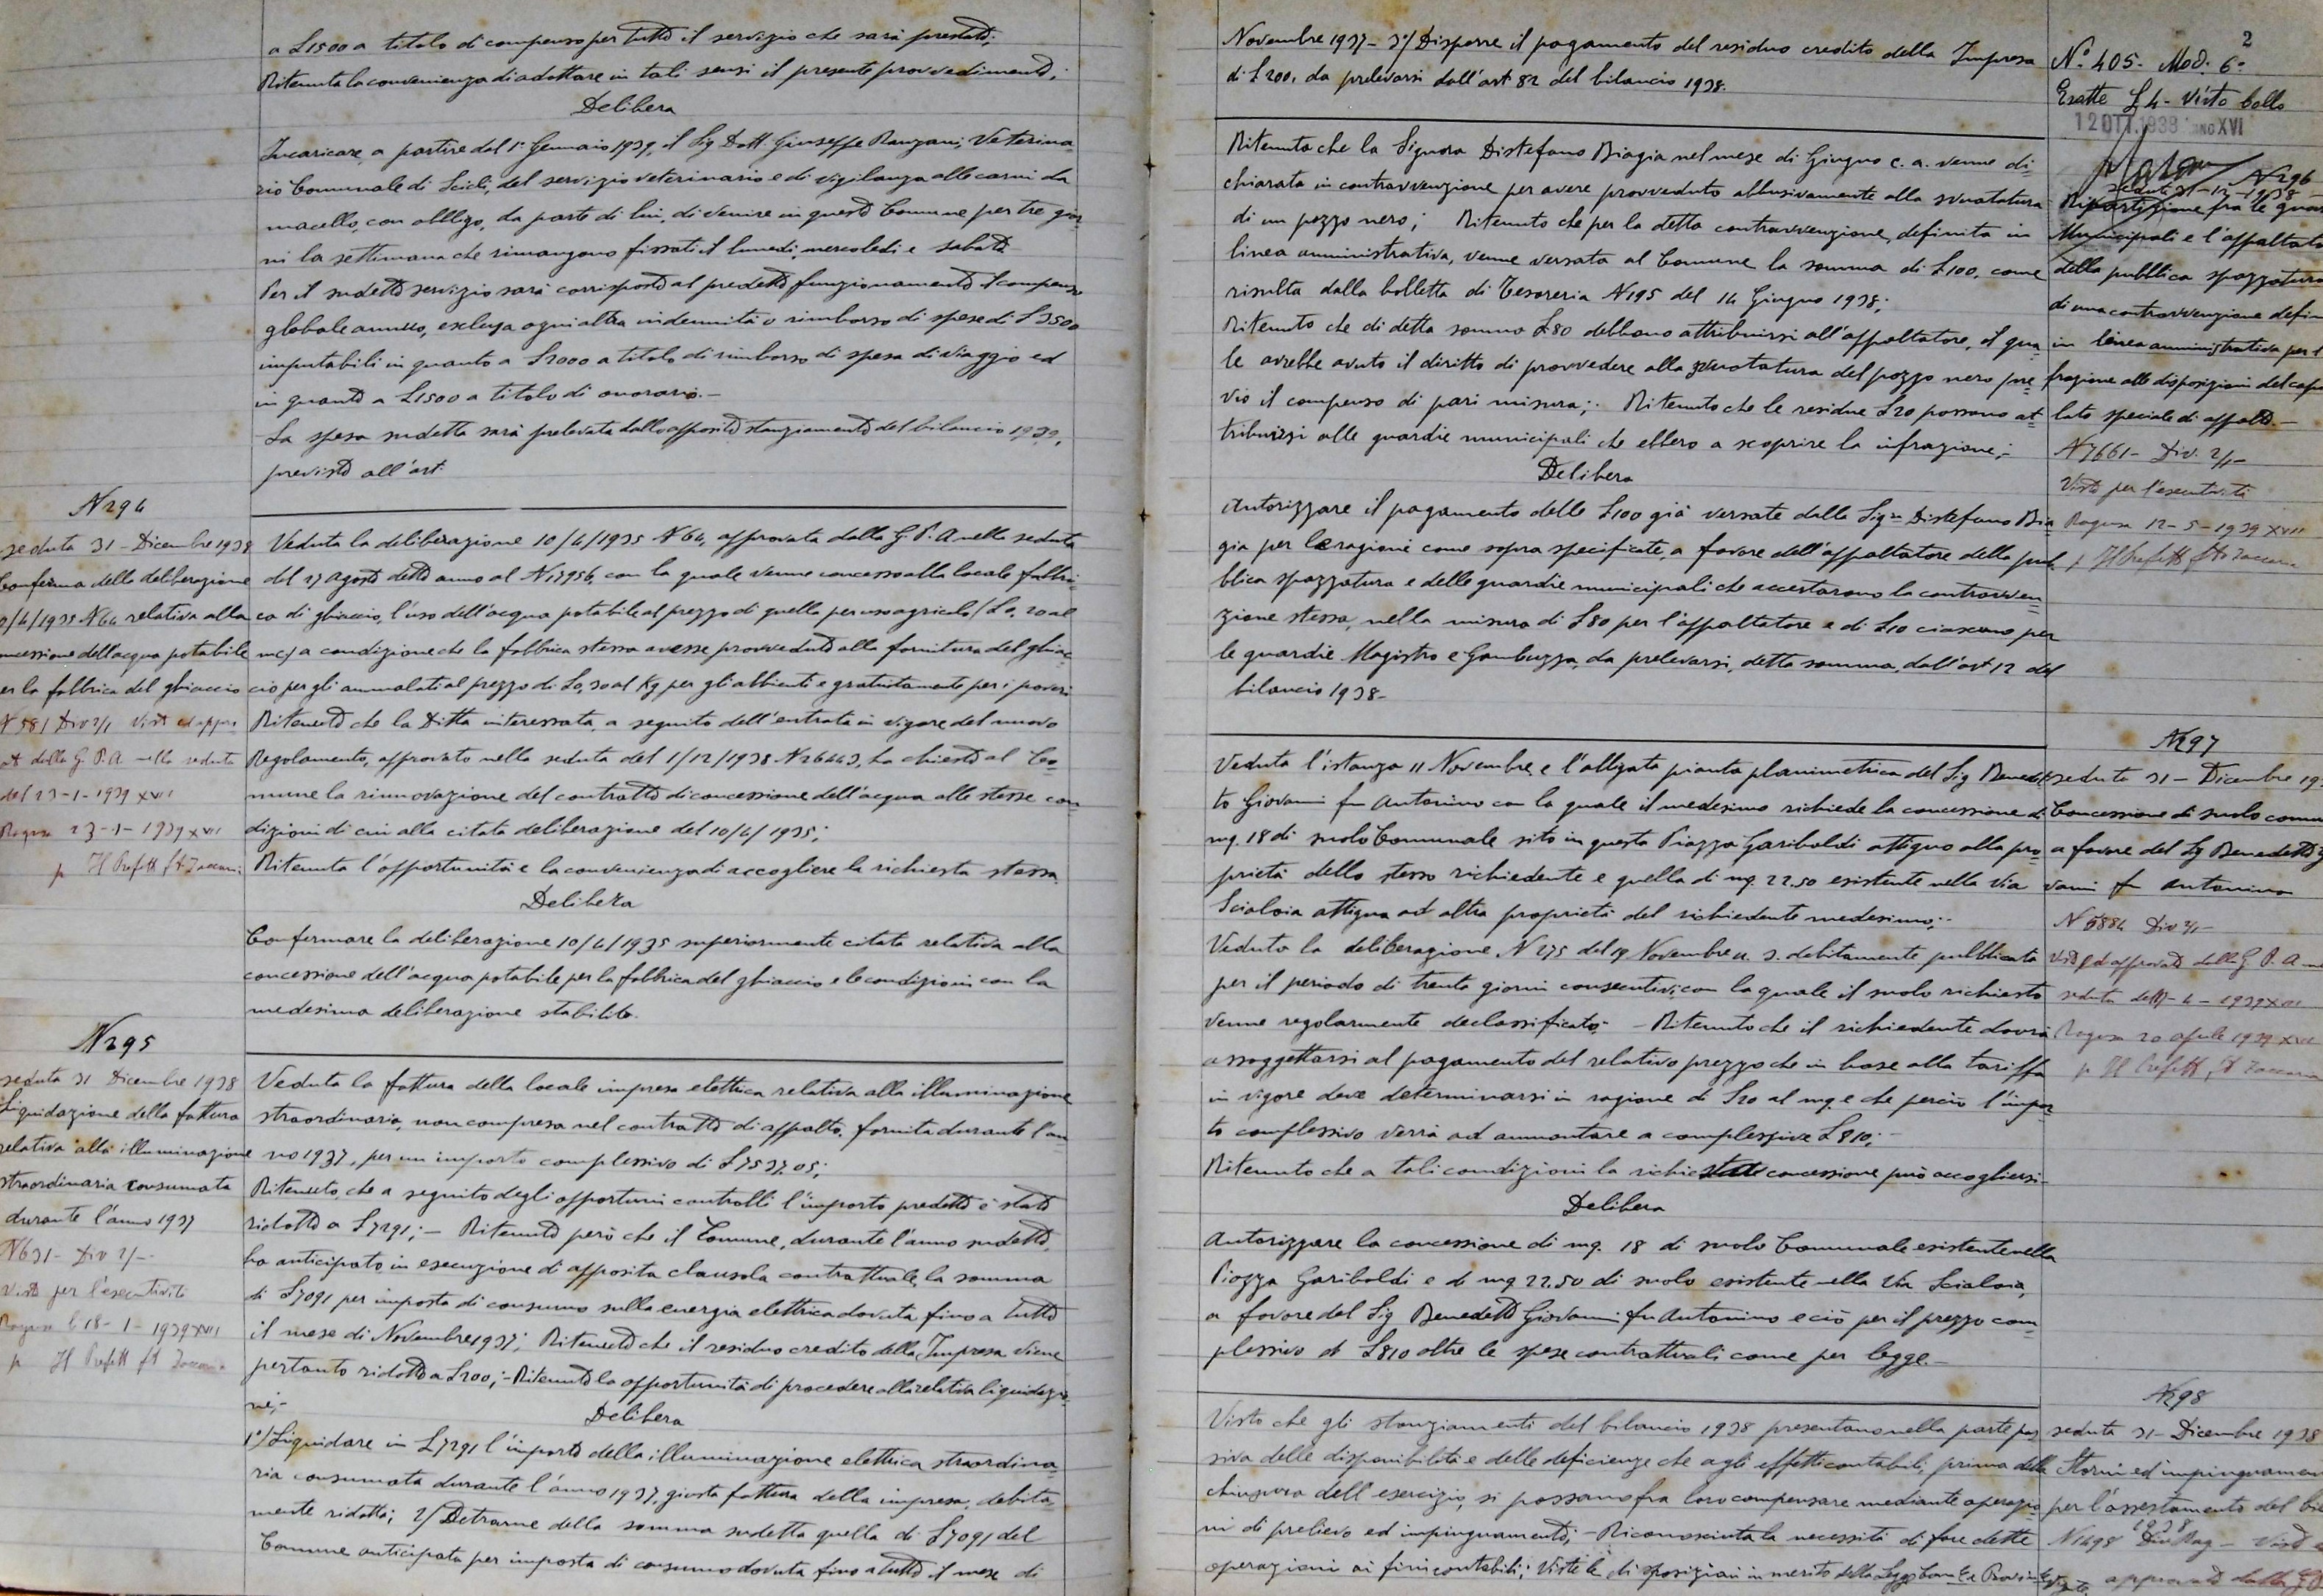 a £ 1500 a titolo di compenso per tutto il servizio che sarà prestato;
Ritenuta la convenienza di adottare in tali sensi il presente provvedimento;
Delibera
Incaricare, a partire dal 1° Gennaio 1939, il Sig Dott. Giuseppe Ranzani, Veterina-
rio Comunale di Scicli, del servizio veterinario e di vigilanza alle carni da
macello, con obbligo, da parte di lui, di venire in questo Comune per tre gior-
ni la settimana che rimangono fissati il lunedì, mercoledì e sabato
Per il sudetto servizio sarà corrisposto al predetto funzionamento il compenso
globale annuo, esclusa ogni altra indennità o rimborso di spese di £ 3500
imputabili in quanto a £ 2000 a titolo di rimborso di spesa di viaggio ed
in quanto a £ 1500 a titolo di onorario.-
La spesa sudetta sarà prelevata dall'apposito stanziamento del bilancio 1939,
previsto all'art.
N 294
seduta 31 - Dicembre 1938
Conferma della deliberazione
10/4/1935 N 64 relativa alla
concessione dell'acqua potabile
per la fabbrica del ghiaccio
N 581 Div 2/1 Visto ed appro
dalla G. P. A. nella seduta
del 23-1-1939 XVII
Ragusa 23-1-1939 XVII
p Il Prefetto
Veduta la deliberazione 10/4/1935 N 64, approvata dalla G. P. A nella seduta
del 27 agosto detto anno al N 17956, con la quale venne concesso alla locale fabbri-
ca di ghiaccio, l'uso dell'acqua potabile al prezzo di quella per uso agricolo (£ 0,20 al
mc) a condizione che la fabbrica stessa avesse provveduto alla fornitura del ghiac-
cio per gli ammalati al prezzo di £ 0,30 al Kg per gli abbienti e gratuitamente per i poveri
Ritenuto che la Ditta interessata, a seguito dell'entrata in vigore del nuovo
Regolamento, approvato nella seduta del 1/12/1938 N 26443, ha chiesto al Co-
mune la rinnovazione del contratto di concessione dell'acqua alle stesse con
dizioni di cui alla citata deliberazione del 10/4/1935;
Ritenuta l'opportunità e la convenienza di accogliere la richiesta stessa.
Delibera
Confermare la deliberazione 10/4/1935 superiormente citata relativa alla
concessione dell'acqua potabile per la fabbrica del ghiaccio e le condizioni con la
medesima deliberazione stabilite.
N 295
seduta 31 Dicembre 1938
Liquidazione della fattura
relativa alla illuminazione
straordinaria consumata
durante l'anno 1937
N 631 - Div 2/-
Visto per l'esecutività
Ragusa li 18-1-1939 XVII
p Il Prefetto
Veduta la fattura della locale impresa elettrica relativa alla illuminazione
straordinaria, non compresa nel contratto di appalto, fornita durante l'an
no 1937, per un importo complessivo di £ 7537.05;
Ritenuto che a seguito degli opportuni controlli l'importo predetto è stato
ridotto a £ 7291; - Ritenuto però che il Comune, durante l'anno sudetto,
ha anticipato in esecuzione di apposita clausola contrattuale, la somma
di £ 7091 per imposta di consumo sulla energia elettrica dovuta fino a tutto
il mese di Novembre 1937; Ritenuto che il residuo credito della Impresa viene
pertanto ridotto a £ 200; - Ritenuto la opportunità di procedere alla relativa liquidazio-
ne;-
Delibera
1°/ Liquidare in £ 7291 l'importo della illuminazione elettrica straordina-
ria consumata durante l'anno 1937, giusta fattura della impresa, debita-
mente ridotta; 2/ Detrarne della somma sudetta quella di £ 7091 del
Comune anticipata per imposta di consumo dovuta fino a tutto il mese di
Novembre 1937 - 3°/ Disporre il pagamento del residuo credito della Impresa
di £ 200, da prelevarsi dall'art 82 del bilancio 1938.
2
N° 405 - Mod. 6°
Esatte £ 4 - Visto bollo
12 OTT. 1938 ANNO XVI
N 296
seduta 31-12-1938
Ripartizione fra le guar
Municipali e l'appaltato
della pubblica spazzatura
di una contravvenzione defin
in linea amministrativa per l
frazione alle disposizioni del capi
lato speciale di appalto.-
N 7661 - Div. 2/1-
Visto per l'esecutività
Ragusa 12-5-1939 XVII
p Il Prefetto
Ritenuto che la Signora Distefano Biagia nel mese di Giugno c. a. venne di-
chiarata in contravvenzione per avere provveduto abusivamente alla svuotatura
di un pozzo nero; Ritenuto che per la detta contravvenzione, definita in
linea amministrativa, venne versata al Comune la somma di £ 100, come
risulta dalla bolletta di Tesoreria N 195 del 14 Giugno 1938;
Ritenuto che di detta somma £ 80 debbono attribuirsi all'appaltatore, il qua-
le avrebbe avuto il diritto di provvedere alla svuotatura del pozzo nero pre-
vio il compenso di pari misura; Ritenuto che le residue £ 20 possono at-
tribuirsi alle guardie municipali che ebbero a scoprire la infrazione;-
Delibera
Autorizzare il pagamento delle £ 100 già versate dalla Sig.ra Distefano Bia
gia per le ragioni come sopra specificate, a favore dell'appaltatore della pub
blica spazzatura e delle guardie municipali che accertarono la contravven-
zione stessa, nella misura di £ 80 per l'appaltatore e di £ 10 ciascuno per
le guardie Magistro e Gambuzza, da prelevarsi, detta somma, dall'art 12 del
bilancio 1938-
N 297
seduta 31 - Dicembre 19
Concessione di suolo comu
a favore del Sig Benedetto G
vanni fu Antonino
N 6884 Div 2/1-
Visto ed approvato dalla G. P. A
seduta dell - 4 - 1939 XVII
Ragusa 20 aprile 1939 XVII
p Il Prefetto
Veduta l'istanza 11 Novembre e l'allegata pianta planimetrica del Sig Benedet
to Giovanni fu Antonino con la quale il medesimo richiede la concessione di
mq. 18 di suolo Comunale sito in questa Piazza Garibaldi attiguo alla pro-
prietà dello stesso richiedente e quella di mq. 22.50 esistente nella Via
Scialoia attigua ad altra proprietà del richiedente medesimo;-
Veduto la deliberazione N 275 del 19 Novembre u. s. debitamente pubblicata
per il periodo di trenta giorni consecutivi, con la quale il suolo richiesto
venne regolarmente declassificato; - Ritenuto che il richiedente dovrà
assoggettarsi al pagamento del relativo prezzo che in base alla tariffa
in vigore deve determinarsi in ragione di £ 20 al mq. e che perciò l'impor-
to complessivo verrà ad ammontare a complessive £ 810;-
Ritenuto che a tali condizioni la richiesta concessione può accogliersi-
Delibera
Autorizzare la concessione di mq. 18 di suolo Comunale esistente nella
Piazza Garibaldi e di mq 22.50 di suolo esistente nella Via Scialoia,
a favore del Sig Benedetto Giovanni fu Antonino e ciò per il prezzo com-
plessivo di £ 810 oltre le spese contrattuali come per legge.-
N 298
seduta 31 - Dicembre 1938
Storni ed impinguamen
per l'assestamento del bi
1938
N 1498 Div Rag - Visto
approvato dalla G.
Visto che gli stanziamenti del bilancio 1938 presentano nella parte pas
siva delle disponibilità e delle deficienze che agli effetti contabili, prima della
chiusura dell'esercizio, si possano fra loro compensare mediante operazio-
ni di prelievo ed impinguamento; - Riconosciuta la necessità di fare dette
operazioni ai fini contabili; Viste le disposizioni in merito della Legge Com.le e Prov.le